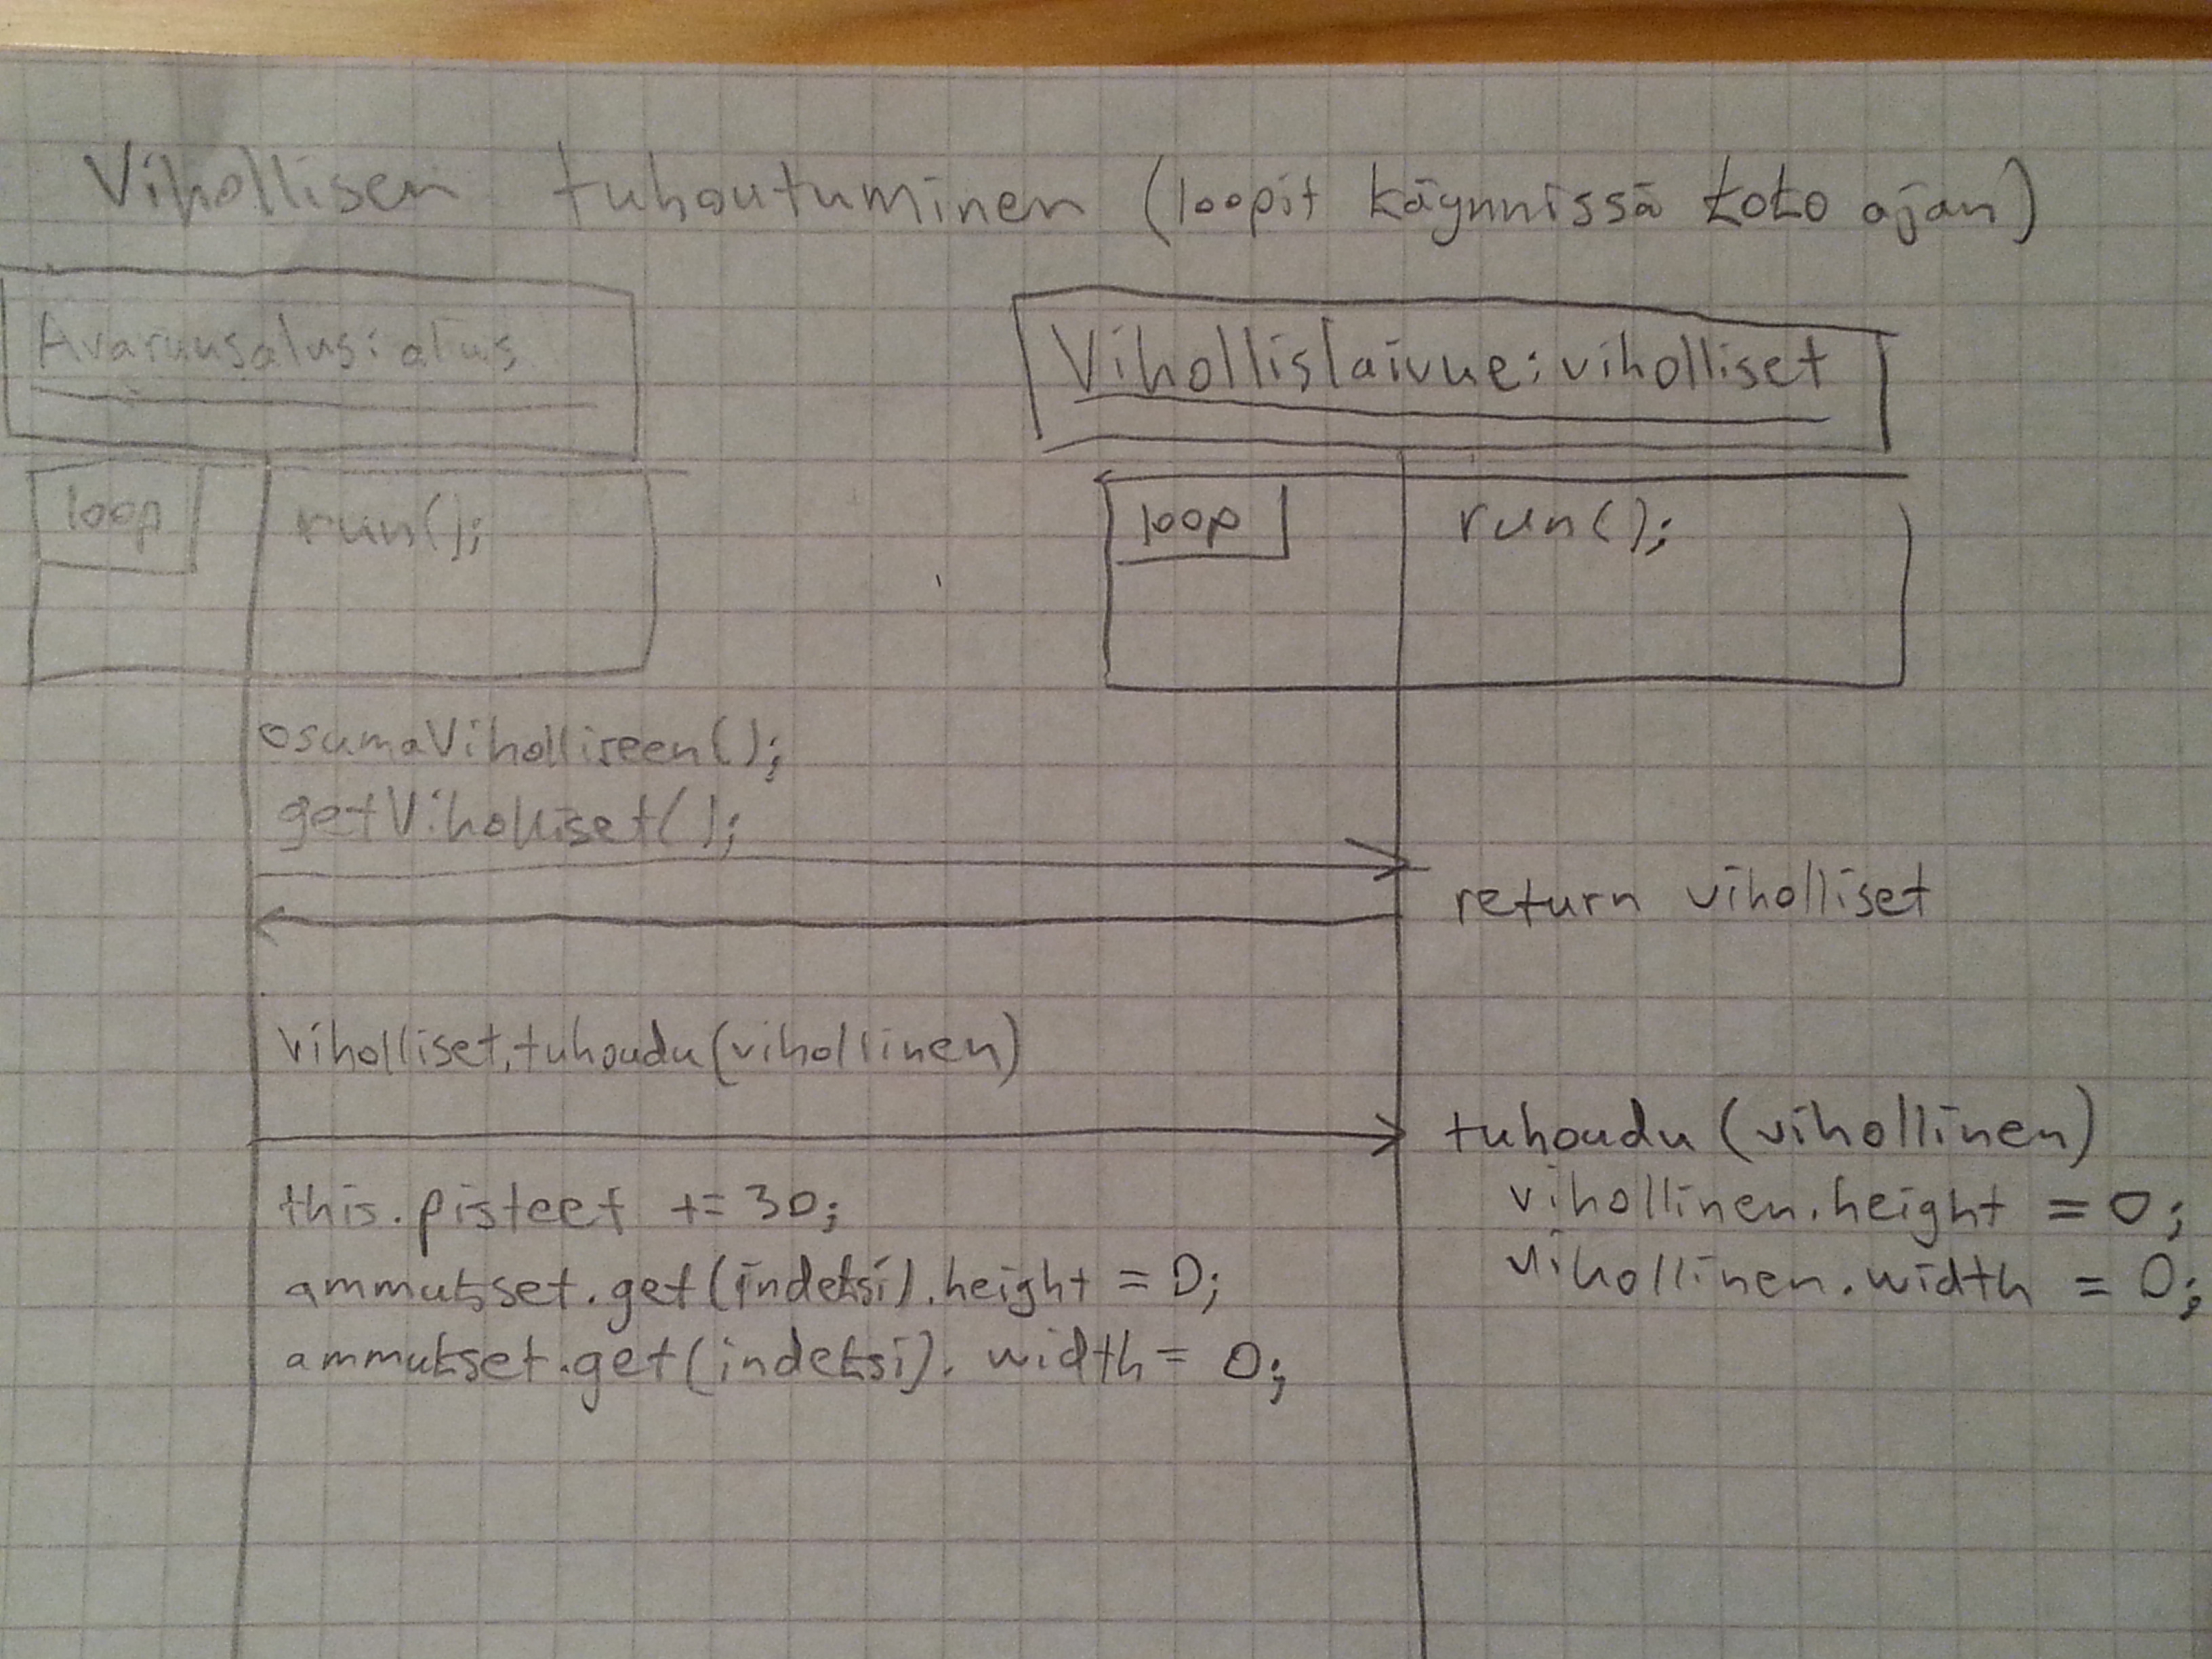 Vihollisen tuhoutuminen (loopit käynnissä koko ajan)
Avaruusalus:alus
loop run();
Vihollislaivue:viholliset
loop run();
osumaViholliseen();
getViholliset();
return viholliset
viholliset.tuhoudu(vihollinen)
tuhoudu(vihollinen)
vihollinen.height = 0;
vihollinen.width = 0;
this.pisteet += 30;
ammukset.get(indeksi).height = 0;
ammukset.get(indeksi).width = 0;